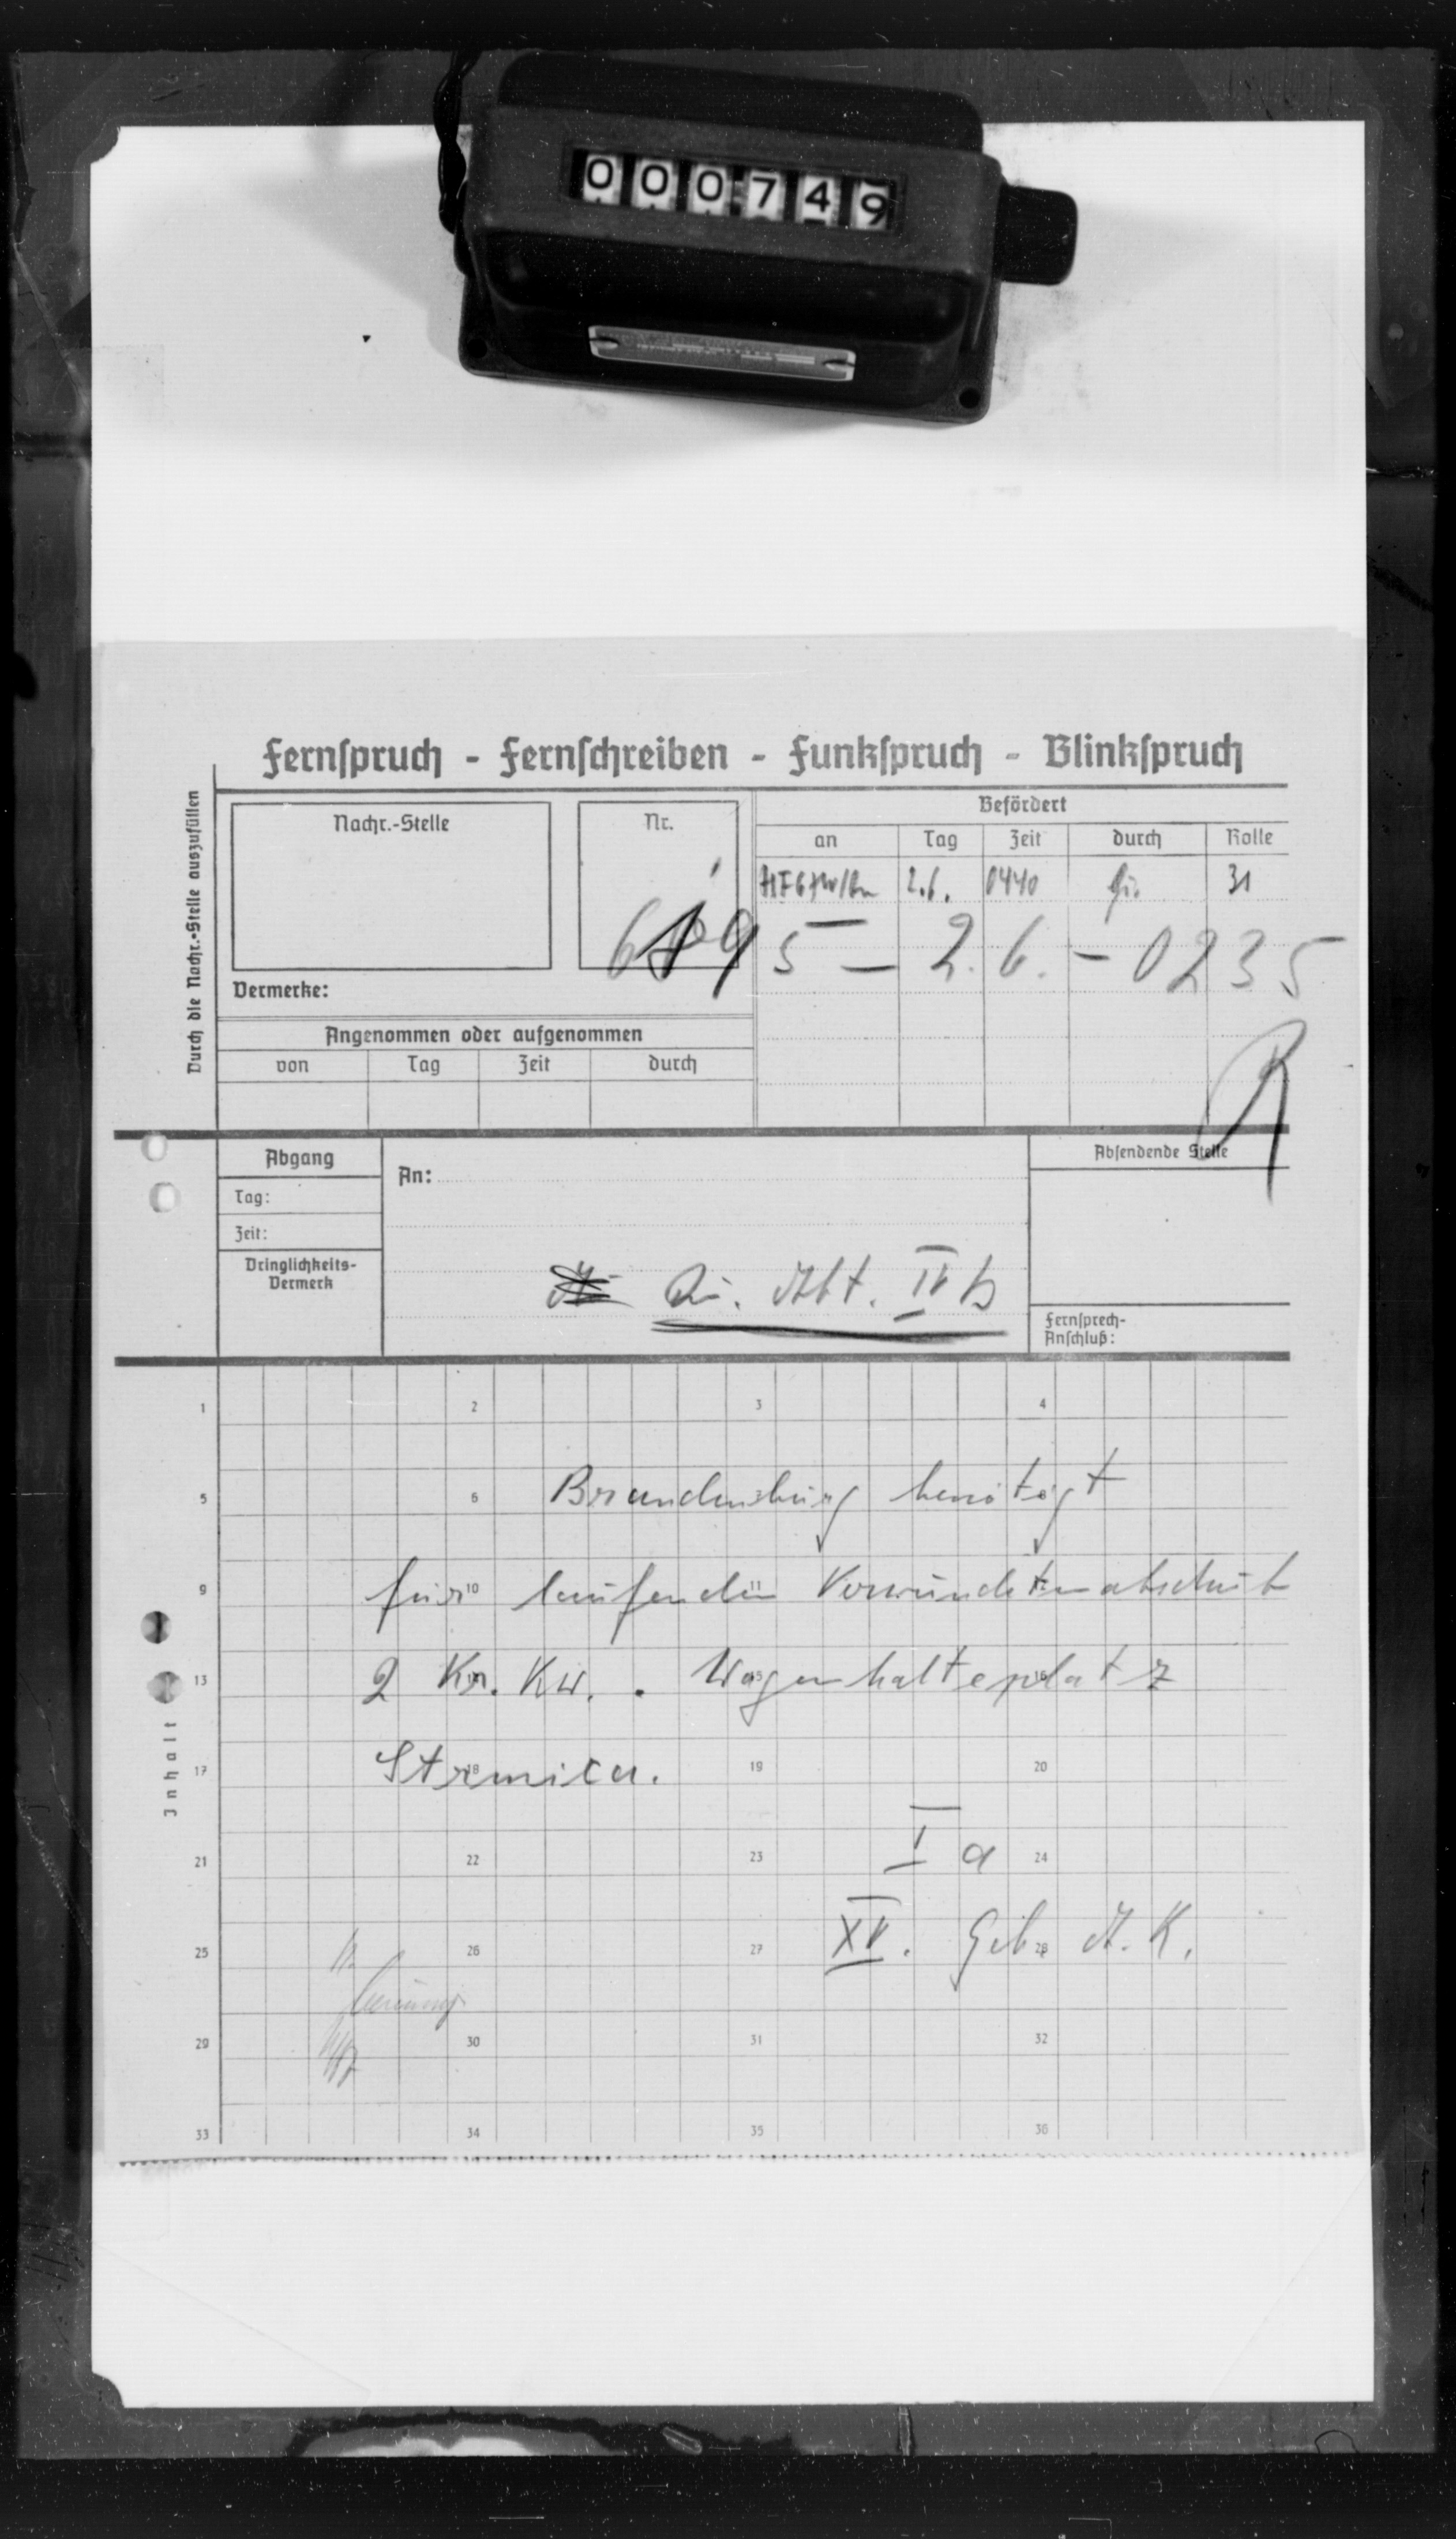 000749
Fernspruch - Fernschreiben - Funkspruch - Blinkspruch
Durch die Nachr.-Stelle auszufüllen
Nachr.-Stelle
Nr.
Befördert
an Tag Zeit durch Rolle
2.6. 0440 31
5 — 2.6. - 0235
Vermerke:
Angenommen oder aufgenommen
von Tag Zeit durch
R
Abgang
Tag:
Zeit:
Dringlichkeits-
Vermerk
An:
Qu. Abt. IV b
Absendende Stelle
Fernsprech-
Anschluß:
Inhalt
1 2 3 4
5 6
Brandenburg benötigt
9 10 11
für laufenden Verwundetenabschub
13 15 16
2 Kr. Kw. . Wagenhalteplatz
17 18 19 20
Strmica.
21 22 23 24
I a
25 26 27 28
XV. Geb. A. K.
29 30 31 32
33 34 35 36